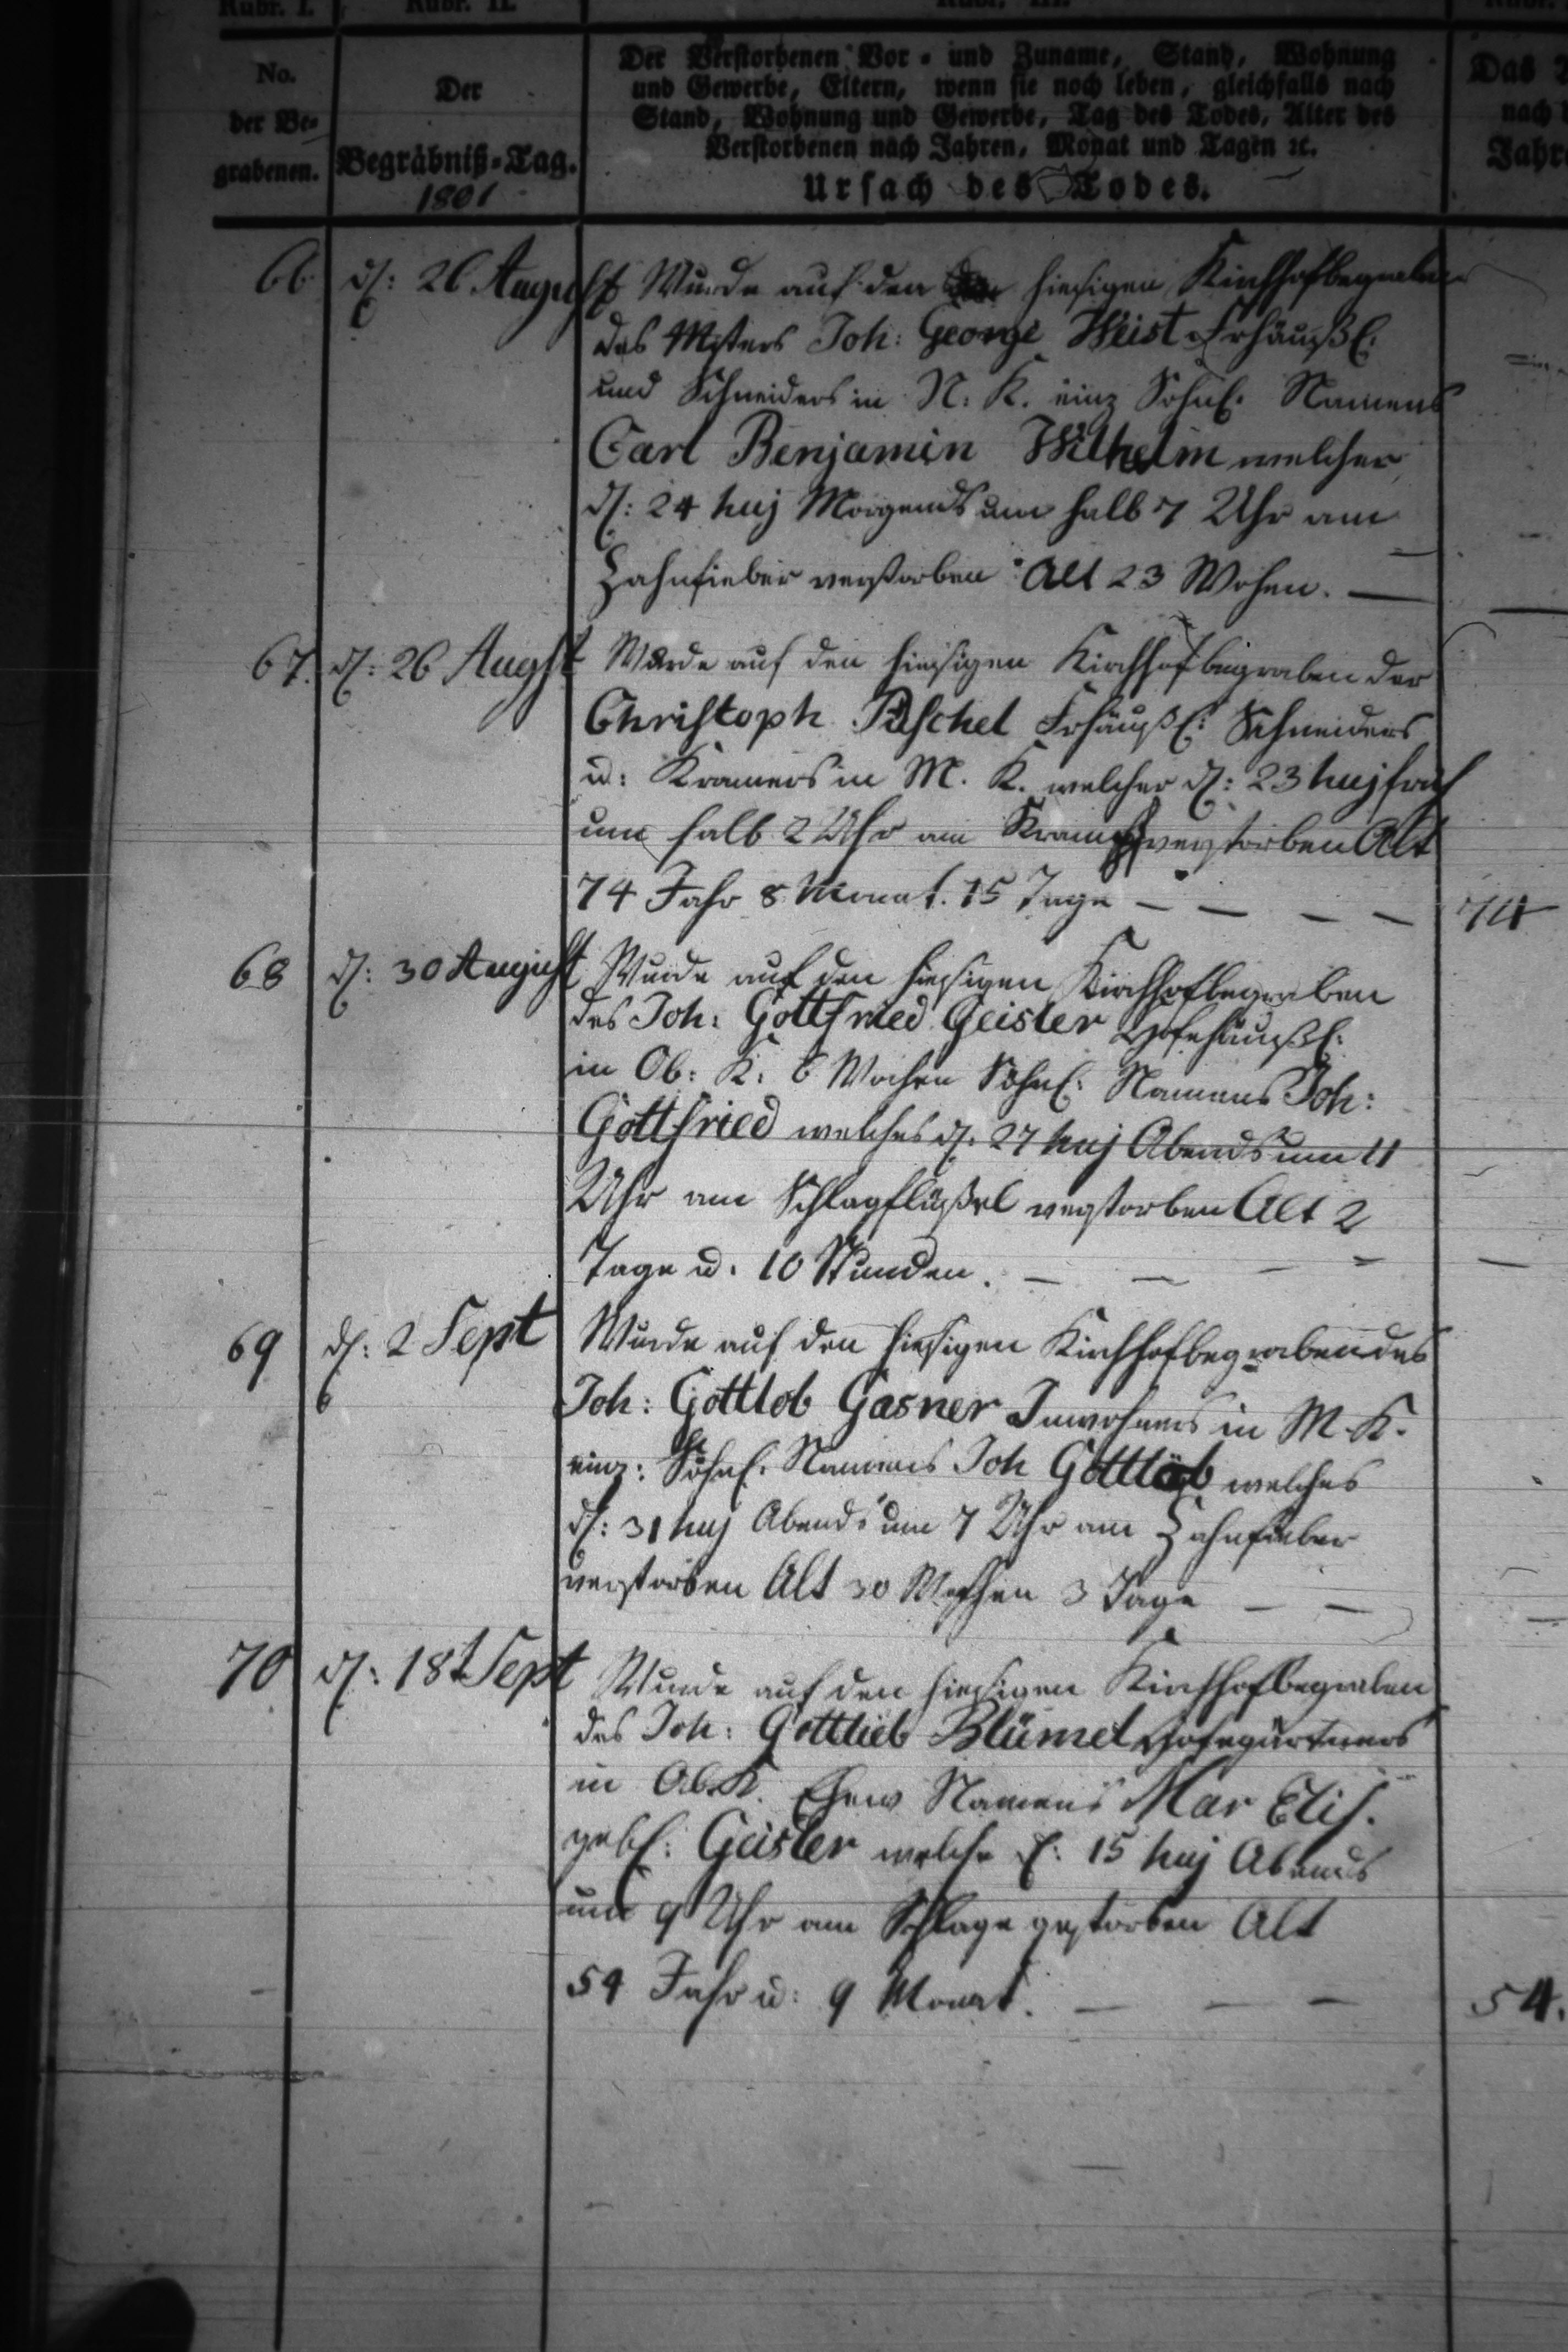 Rubr. I.
Rubr. II.
Rubr. III.
No.
der Be-
grabenen.
Der
Begräbniß-Tag.
1801
Der Verstorbenen Vor- und Zuname, Stand, Wohnung
und Gewerbe, Eltern, wenn sie noch leben, gleichfalls nach
Stand, Wohnung und Gewerbe, Tag des Todes, Alter des
Verstorbenen nach Jahren, Monat und Tagen ꝛc.
Ursach des Todes.
Das
nach
Jahre
66 d: 26 August Wurde auf den hiesigen Kirchhof begraben
des Msters Joh: George Weist Frhäußl:
und Schneiders in N: K. einz Söhnl: Namens
Carl Benjamin Wilhelm welcher
d: 24 huj Morgends um halb 7 Uhr am
Zahnfieber verstorben Alt 23 Wochen. —
67. d: 26 Augst Wurde auf den hiesigen Kirchhof begraben der
Christoph Püschel Frhäußl: Schneiders
u: Kramers in M. K. welcher d: 23 huj früh
um halb 2 Uhr am Krampf verstorben Alt
74 Jahr 8 Monat. 15 Tage — — — — 74
68 d: 30 August Wurde auf den hiesigen Kirchhof begraben
des Joh: Gottfried Geisler Hofehäußl:
in Ob: K: 6 Wochen Söhnl: Namens Joh:
Gottfried welches d: 27 huj Abends um 11
Uhr am Schlagflüßel verstorben Alt 2
Tage u. 10 Stunden. — — — —
69 d: 2 Sept Wurde auf den hiesigen Kirchhof begraben des
Joh: Gottlob Gasner Inwohners in M. K.
einz: Söhnl: Namens Joh Gottlob welches
d: 31 huj Abends um 7 Uhr am Zahnfieber
verstorben Alt 30 Wochen 3 Tage — —
70 d: 18t Sept Wurde auf den hiesigen Kirchhof begraben
des Joh: Gottlieb Blümel Hofegärtners
in Ob. K. Ehew Namens Mar Elis.
gebl: Geisler welche d: 15 huj Abends
um 9 Uhr am Schlage gestorben Alt
54 Jahr u: 9 Monat. — — — 54.